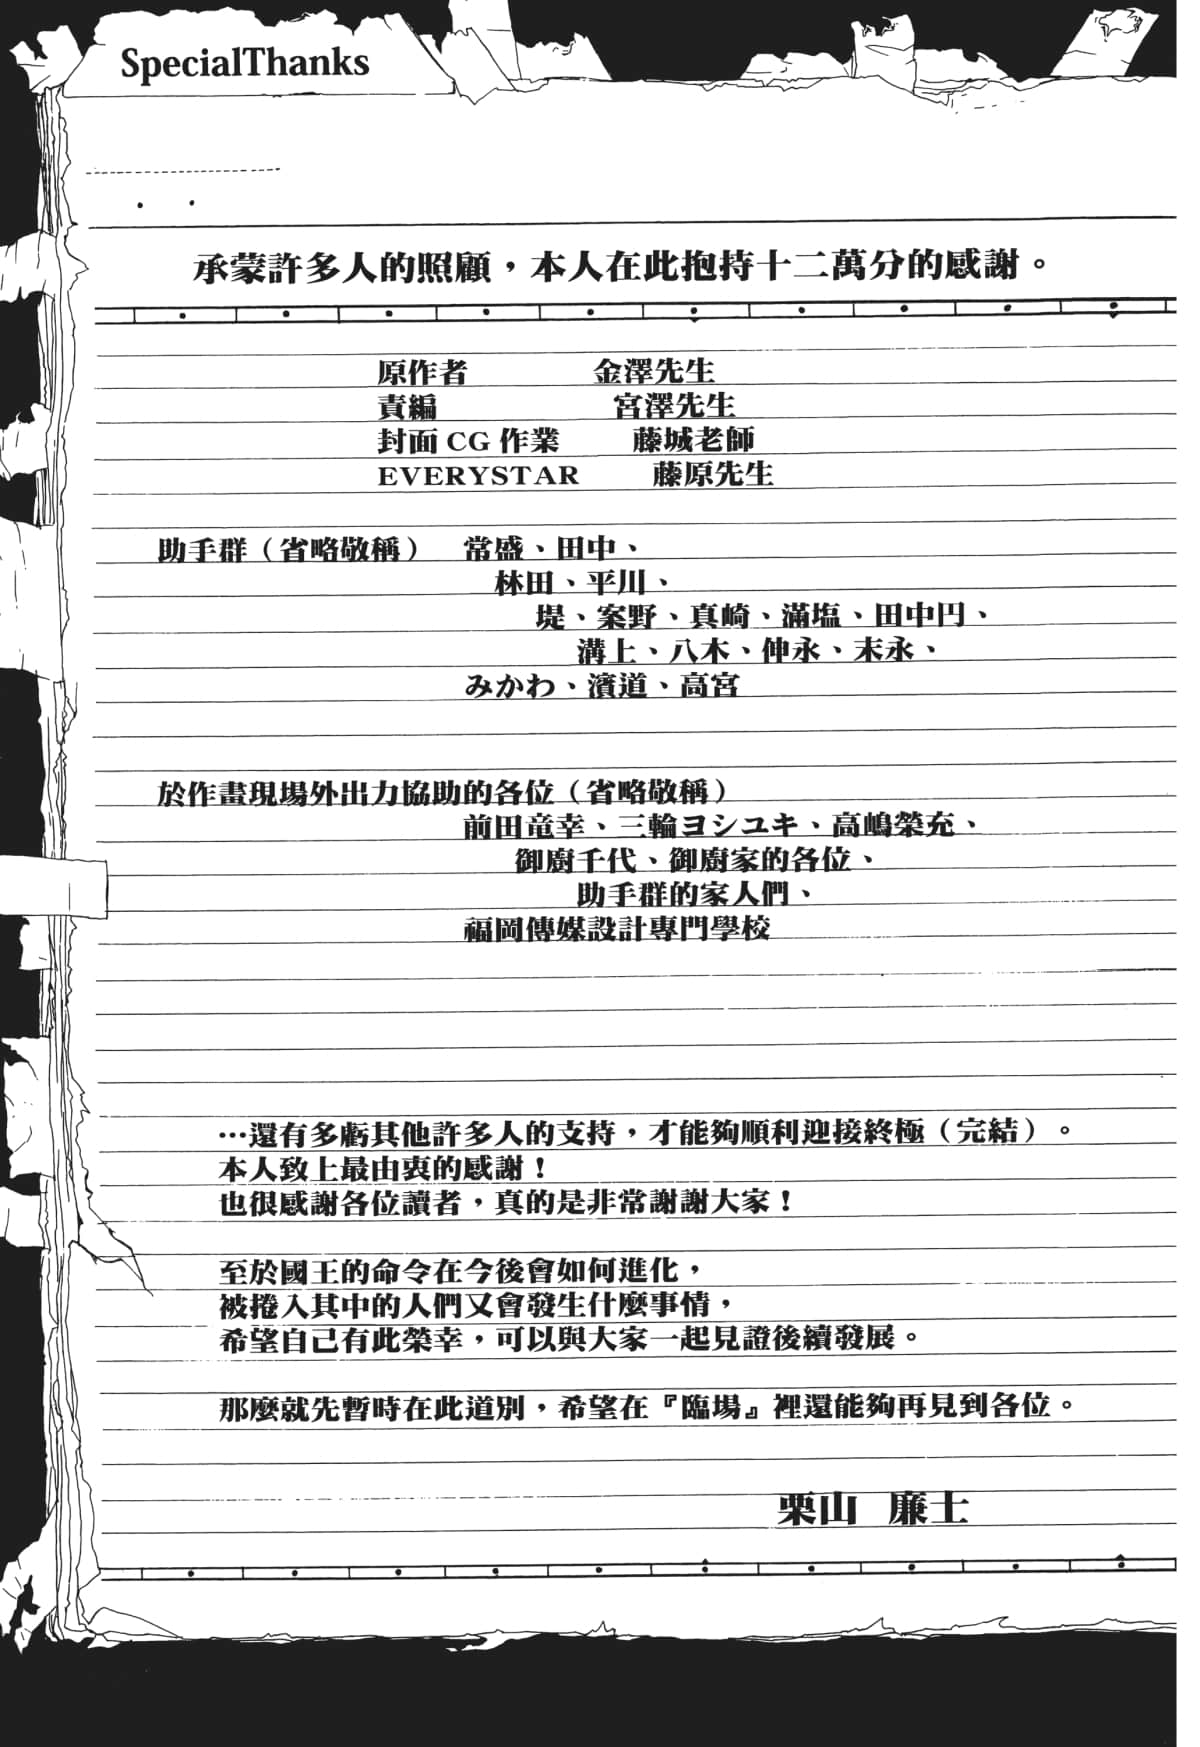 SpecialThanks
承蒙許多人的照顧，本人在此抱持十二萬分的感謝。
原作者 金澤先生
責編 宮澤先生
封面 CG 作業 藤城老師
EVERYSTAR 藤原先生
助手群（省略敬稱） 常盛、田中、
林田、平川、
堤、案野、真崎、滿塩、田中円、
溝上、八木、伸永、末永、
みかわ、濱道、高宮
於作畫現場外出力協助的各位（省略敬稱）
前田竜幸、三輪ヨシユキ、高嶋榮充、
御廚千代、御廚家的各位、
助手群的家人們、
福岡傳媒設計專門學校
…還有多虧其他許多人的支持，才能夠順利迎接終極（完結）。
本人致上最由衷的感謝！
也很感謝各位讀者，真的是非常謝謝大家！
至於國王的命令在今後會如何進化，
被捲入其中的人們又會發生什麼事情，
希望自己有此榮幸，可以與大家一起見證後續發展。
那麼就先暫時在此道別，希望在『臨場』裡還能夠再見到各位。
栗山 廉士